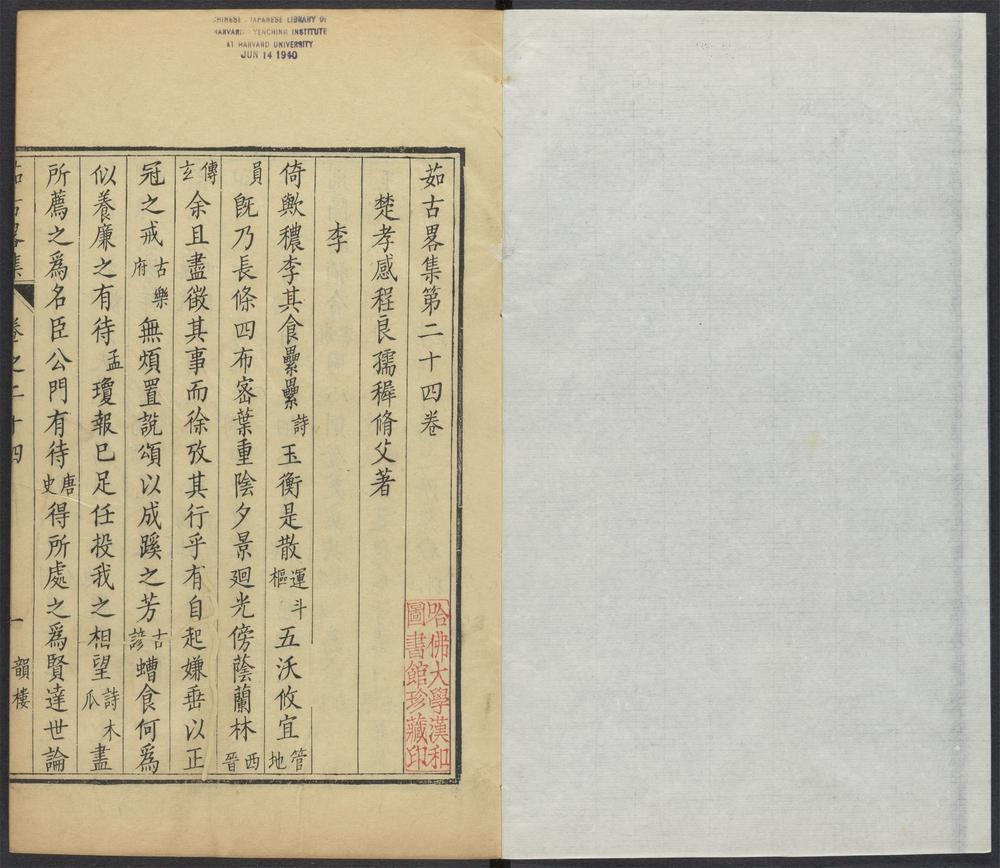 CHINESE - JAPANESE LIBRARY OF
HARVARD - YENCHING INSTITUTE
AT HARVARD UNIVERSITY
JUN 14 1940
茹古畧集第二十四卷
楚孝感程良孺穉脩父著
李
倚歟穠李其食纍纍詩玉衡是散運斗樞五沃攸宜管地
員旣乃長條四布宻葉重陰夕景廻光傍蔭蘭林西晉
傳玄余且盡徴其事而徐攷其行乎有自起嫌垂以正
冠之戒古樂府無煩置說頌以成蹊之芳古諺螬食何爲
似養廉之有待孟瓊報已足任投我之相望詩木瓜盡
所薦之爲名臣公門有待唐史得所處之爲賢達世論
茹古畧集
卷之二十四
一
韻樓
哈佛大學漢和
圖書館珍藏印